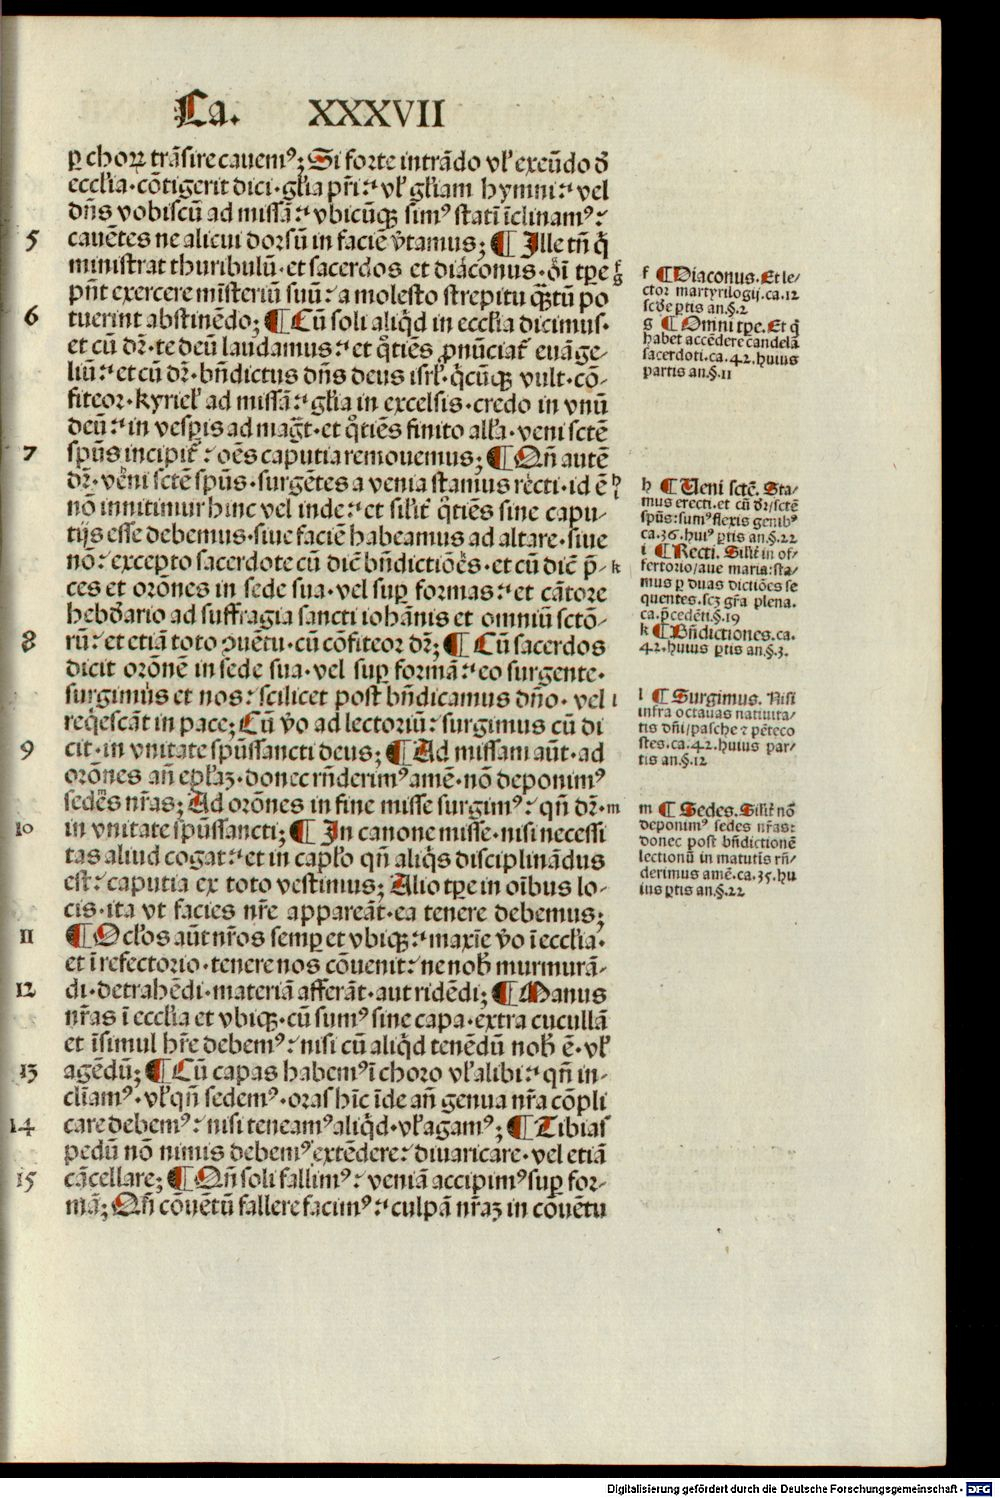 Ca. XXXVII
ꝑ chorꝝ trãsire cauemꝰ; Si forte intrãdo vꝉ exeũdo ð
eccꝉia·cõtigerit dici·gꝉia pr̃i:ᷣ vꝉ gꝉiam hymni:ᷣ vel
dñs vobiscũ ad missã:ᷣ vbicũqꝫ simꝰ statĩ ĩclinamꝰ:ᷣ
5 cauẽtes ne alicui dorsũ in faciẽ ṽtamus; ¶ Ille tñ q̃
ministrat thuribulũ·et sacerdos et diaconus·oĩ tꝑe f g
pñt exercere mĩsteriũ suũ:ᷣ a molesto strepitu qꝫtũ po
6 tuerint abstinẽdo; ¶ Cũ soli aliqͥd in eccꝉia dicimus·
et cũ dr̃·te deũ laudamus:ᷣ et qͦtiẽs ꝓnũciat̃ euãge-
liũ:ᷣ et cũ dr̃·bñdictus dñs deus isrꝉ·qͥcũqꝫ vult·cõ-
fiteor·kyrieꝉ ad missã:ᷣ gꝉia in excelsis·credo in vnũ
deũ:ᷣ in vesꝑis ad mag̃t·et qͦtiẽs finito alꝉa·veni sctẽ
7 spũs incipit̃:ᷣ oẽs caputia remouemus; ¶ Qñ autẽ
dr̃·vẽni sctẽ spũs·surgẽtes a venia stamus recti·id ẽ h i
nõ innitimur hinc vel inde:ᷣ et silit̃ qͦtiẽs sine capu-
tijs esse debemus·siue faciẽ habeamus ad altare·siue
nõ:ᷣ excepto sacerdote cũ diẽ bñdictiões·et cũ diẽ p̃- k
ces et orõnes in sede sua·vel suꝑ formas:ᷣ et cãtore
hebðario ad suffragia sancti iohãnis et omniũ sctõ-
8 rũ:ᷣ et etiã toto ꝯuẽtu·cũ cõfiteor dr̃; ¶ Cũ sacerdos
dicit orõnẽ in sede sua·vel suꝑ formã:ᷣ eo surgente·
surgimus et nos:ᷣ scilicet post bñdicamus dño· vel l
reqͥescãt in pace; Cũ ṽo ad lectoriũ:ᷣ surgimus cũ di
9 cit·in vnitate spũssancti deus; ¶ Ad missam aũt·ad
orõnes añ epꝉaꝫ·donec rñderimꝰ amẽ·nõ deponimꝰ
sedes nr̃as; Ad orõnes in fine misse surgimꝰ:ᷣ qñ dr̃· m
10 in vnitate spũssancti; ¶ In canone misse·nisi necessi
tas aliud cogat:ᷣ et in capꝉo qñ aliqͥs disciplinãdus
est:ᷣ caputia ex toto vestimus; Alio tꝑe in oĩbus lo-
cis·ita vt facies nr̃e appareãt·ea tenere debemus;
11 ¶ Ocꝉos aũt nr̃os semꝑ et vbiqꝫ:ᷣ maxĩe ṽo ĩ eccꝉia·
et ĩ refectorio·tenere nos cõuenit:ᷣ ne noƀ murmurã-
12 di·detrahẽdi·materiã afferãt·aut ridẽdi; ¶ Manus
nr̃as ĩ eccꝉia et vbiqꝫ·cũ sumꝰ sine capa·extra cucullã
et ĩsimul hr̃e debemꝰ:ᷣ nisi cũ aliqͥd tenẽdũ noƀ ẽ·vꝉ
13 agẽdũ; ¶ Cũ capas habemꝰ ĩ choro vꝉ alibi:ᷣ qñ in-
clĩamꝰ·vꝉ qñ sedemꝰ·oras hĩc ĩde añ genua nr̃a cõpli
14 care debemꝰ:ᷣ nisi teneamꝰ aliqͥd·vꝉ agamꝰ; ¶ Tibias
pedũ nõ nimis debemꝰ extẽdere:ᷣ diuaricare·vel etiã
15 cãcellare; ¶ Qñ soli fallimꝰ:ᷣ veniã accipimꝰ suꝑ for-
mã; Qñ cõuẽtũ fallere facimꝰ:ᷣ culpã nr̃aꝫ in cõuẽtu
f ¶ Diaconus. Et le-
ctor martyrilogij. ca. 12
scðe ꝑtis an. §. 2
g ¶ Omni tꝑe. Et q̃
habet accẽdere candelã
sacerdoti. ca. 42. huius
partis an. §. 11
h ¶ Ueni sctẽ. Sta-
mus erecti. et cũ dr̃/sctẽ
spũs: sumꝰ flexis genibꝰ
ca. 36. huiꝰ ꝑtis an. §. 22
i ¶ Recti. Silit̃ in of-
fertorio/aue maria: sta-
mus ꝑ duas dictiões se
quentes. scꝫ gr̃a plena.
ca. p̃cedẽti. §. 19
k ¶ Bñdictiones. ca.
42. huius ꝑtis an. §. 3.
l ¶ Surgimus. Nisi
infra octauas natiuita-
tis dñi/pasche ⁊ pẽteco
stes. ca. 42. huius par-
tis an. §. 12
m ¶ Sedes. Silit̃ nõ
deponimꝰ sedes nr̃as:
donec post bñdictionẽ
lectionũ in matutĩs rñ-
derimus amẽ. ca. 35. hu
ius ꝑtis an. §. 22
Digitalisierung gefördert durch die Deutsche Forschungsgemeinschaft - DFG